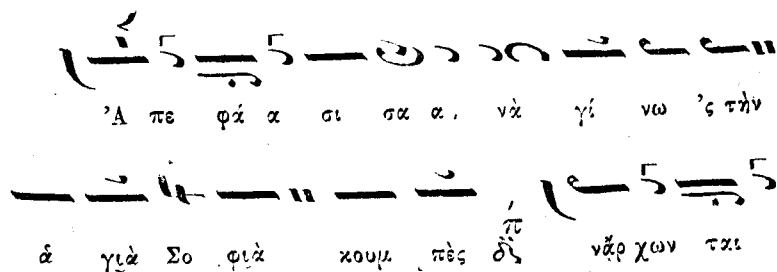 Ἀ πε φά α σι σα α, νὰ γί νω 'ς τὴν
ἁ γιὰ Σο φιὰ κουμ πὲς νἄρ χων ται